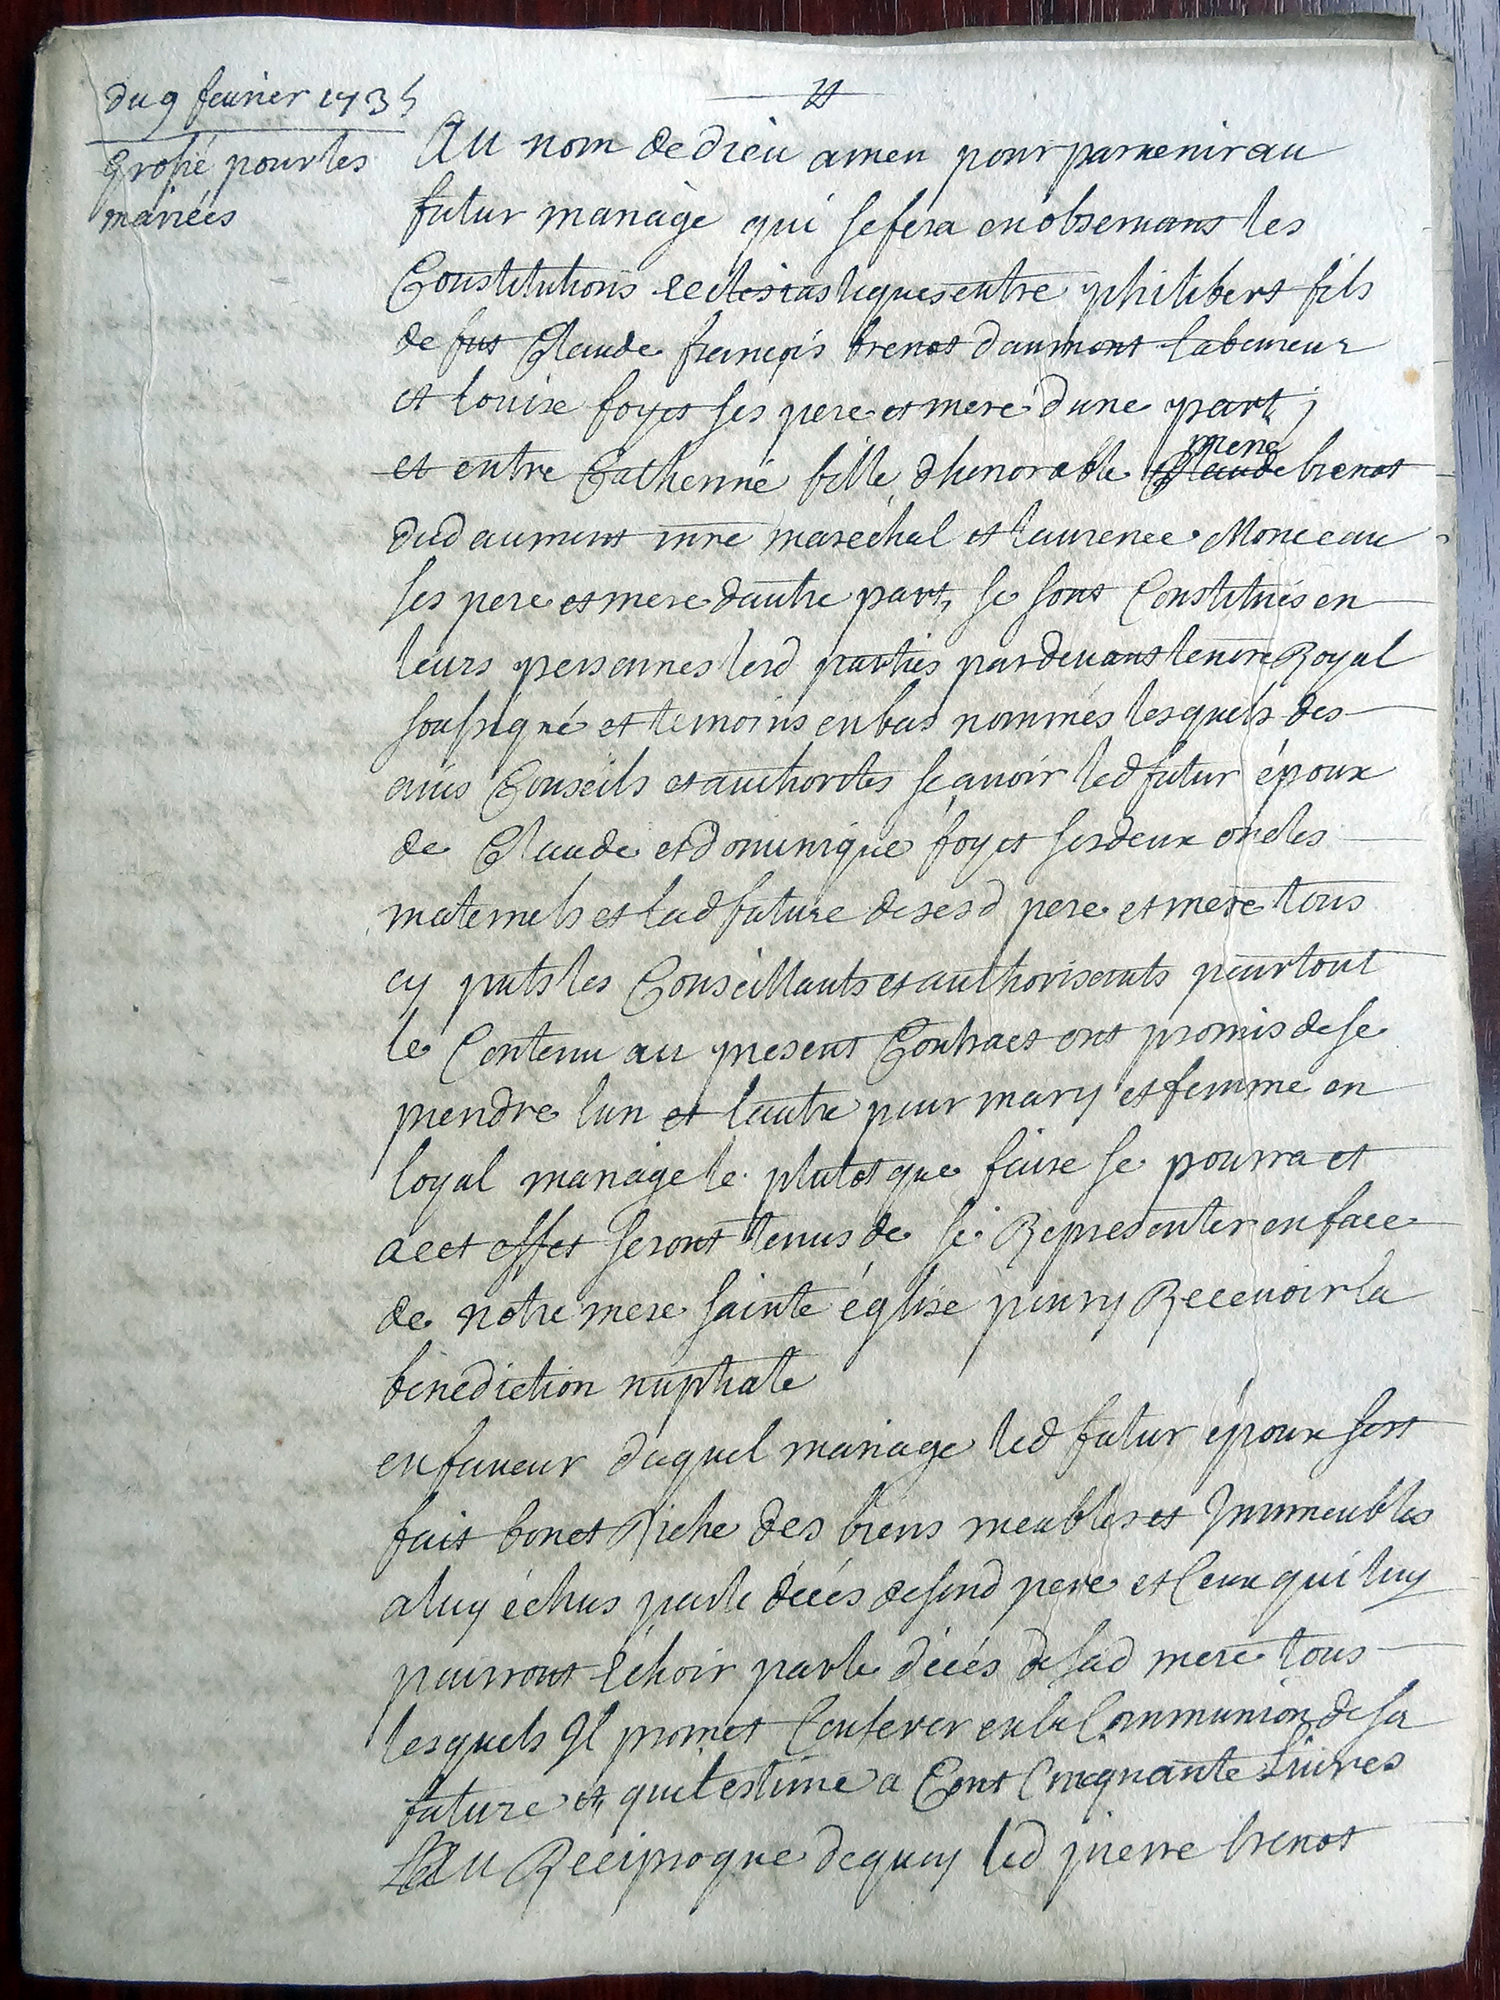 du 9 feurier 1735
Grossé pour les
mariées
Au nom de dieu amen pour paruenir au
futur mariage qui se fera en obseruans les
Constitutions ecclesiastiques entre philibert fils
de fut Claude françois brenot daumont laboureur
et louise foyet ses pere et mere d'une part ;
et entre Catherine fille dhonorable Claude pierre brenot
dud aumont mre marechal et laurence Monceau
ses pere et mere dautre part, se sont Constitués en
leurs personnes lesd parties pardeuant le nore Royal
soussigné et temoins en bas nommés lesquels des
auis Conseils et authorités sçauoir led futur époux
de Claude et dominique foyet ses deux oncles
maternels et lad future de sesd pere et mere tous
cy pnts les Conseillants et authorisants pour tout
le Contenu au present Contract ont promis de se
prendre lun et lautre pour mary et femme en
loyal mariage le plutot que faire se pourra et
a cet effet seront tenus de se Representer en face
de notre mere sainte église pour y Receuoir la
benediction nuptiale
en faueur duquel mariage led futur époux sest
fait bon et Riche des biens meubles et Immeubles
a luy échus par le décés de sond pere et Ceux qui luy
pourront Echoir par le décés de sad mere tous
lesquels Il promet Conferer en la Communion de sa
future et quil estime a Cent Cinquante Liures
Au Reciproque de quoy led pierre brenot